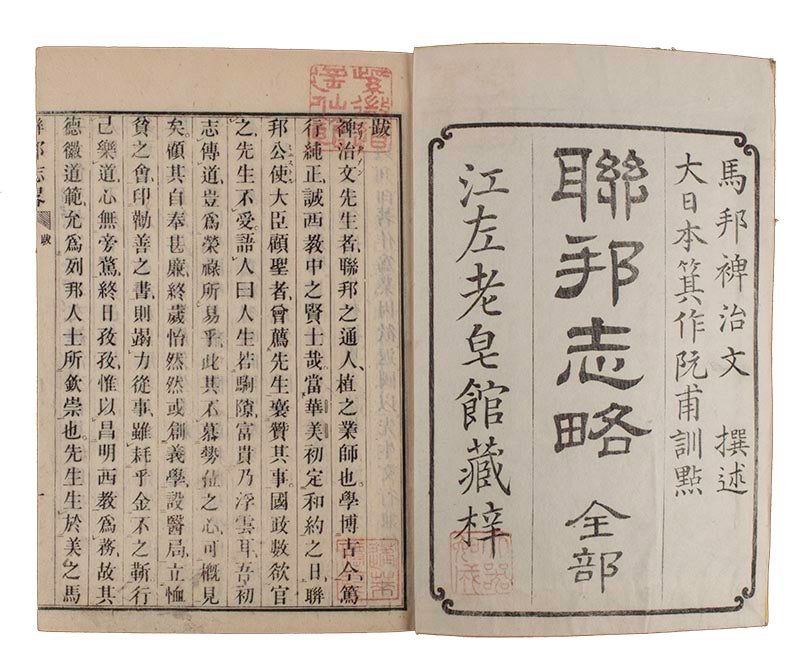 馬邦裨治文 撰述
大日本箕作阮甫訓點
聯邦志略 全部
江左老皂館藏梓
跋
裨治文先生者聯邦之通人植之業師也學博古今篤
行純正誠西教中之賢士哉當華美初定和約之日聯
邦公使大臣顧聖者曾薦先生襄贊其事國政數欲官
之先生不受語人曰人生若駒隙富貴乃浮雲耳吾初
志傳道豈爲榮祿所易乎此其不慕勢位之心可概見
矣顧其自奉甚廉終歲怡然然或創義學設醫局立恤
貧之會印勸善之書則竭力從事雖耗乎金不之靳行
己樂道心無旁騖終日孜孜惟以昌明西教爲務故其
德徽道範允爲列邦人士所欽崇也先生生於美之馬
聯邦志畧 跋 一